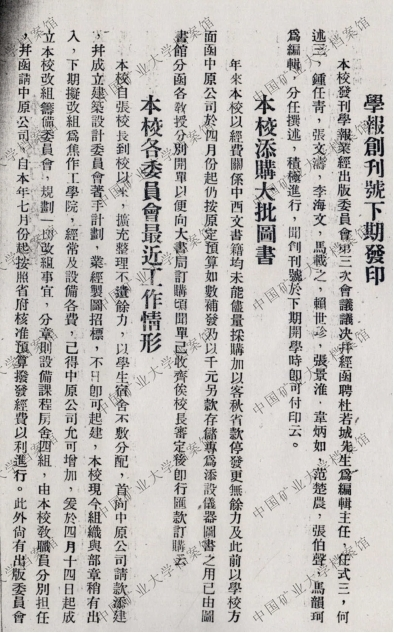 學報創刊號下期發印
本校發刊學報業經出版委員會第三次會議議決幷經函聘杜若城先生爲編輯主任，任式三，何
述三，鍾任靑，張文濤，李海文，馬載之，賴世珍，張景淮，韋炳如，范楚農，張伯聲，馬韻珂
爲編輯，分任撰述，積極進行，聞創刊號於下期開學時卽可付印云。
本校添購大批圖書
年來本校以經費關係中西文書籍均未能儘量採購加以客秋省款停發更無餘力及此前以學校方
面函中原公司於四月份起仍按原定預算如數補發乃以千元另款存儲專爲添設儀器圖書之用已由圖
書館分函各敎授分別開單以便向大書局訂購頃聞單已收齊俟校長審定後卽行匯款訂購云
本校各委員會最近工作情形
本校自張校長到校以來，擴充整理不遺餘力，以學生宿舍不敷分配，首向中原公司請款添建
，幷成立建築設計委員會著手計劃，業經製圖招標，不日卽可起建，本校現今組織與部章稍有出
入，下期擬改組爲焦作工學院，經常及設備各費，已得中原公司允可增加，爰於四月十四日起成
立本校改組籌備委員會，規劃一切改組事宜，分章則設備課程房舍四組，由本校敎職員分別担任
，幷函請中原公司，自本年七月份起按照省府核准預算撥發經費以利進行。此外尙有出版委員會
中国矿业大学档案馆